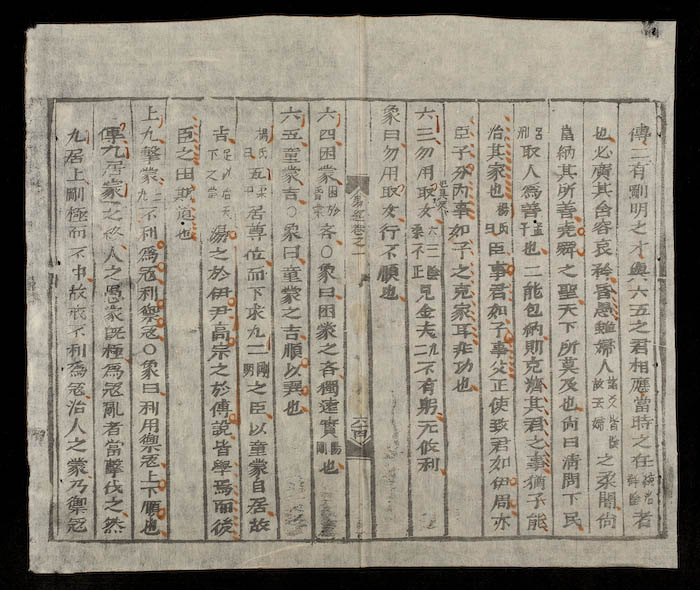 傳二有剛明之才與六五之君相應當時之任者
也必廣其含容哀矜昏愚雖婦人諸爻皆陰故云婦之柔闇尚
當納其所善堯舜之聖天下所莫及也尚曰清問下民
取人爲善孟子也二能包納則克濟其君之事猶子能
治其家也楊氏曰臣事君如子事父正使致君如伊周亦
臣子分內事如子之克家耳非功也
六三勿用取女六三陰柔不正見金夫九二不有躬无攸利
象曰勿用取女行不順也
易經卷之一
六四困蒙困於昏蒙吝○象曰困蒙之吝獨遠實陽剛也
六五童蒙吉○象曰童蒙之吉順以巽也
楊氏曰五以柔居尊位而下求九二剛明之臣以童蒙自居故
吉足以治天下之蒙湯之於伊尹高宗之於傅說皆學焉而後
臣之由斯道也
上九擊蒙不利爲寇利禦寇○象曰利用禦寇上下順也
傳九居蒙之終人之愚蒙既極爲寇亂者當擊伐之然
九居上剛極而不中故戒不利爲寇治人之蒙乃禦寇